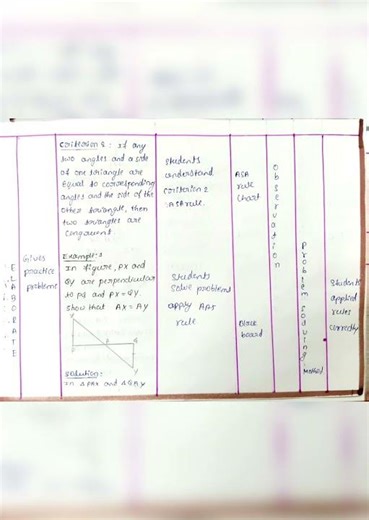 ELABORATE
Gives
practice
problems
Criterion 2 : If any
two angles and a side
of one triangle are
equal to corresponding
angles and the side of the
other triangle, then
two triangles are
congruent.
Example:-2
In figure, PX and
QY are perpendicular
to PQ and PX = QY.
Show that AX = AY
P
A
Y
Solution:
In △PAX and △QAY
Students
understand
criterion 2
Students
solve problems
apply AAS
rule
ASA
rule
chart
Black
board
Observation
Problem solving
Method
Students
applied
rules
correctly